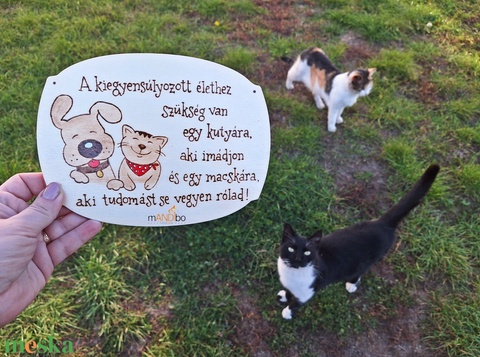 A kiegyensúlyozott élethez
szükség van
egy kutyára,
aki imádjon
és egy macskára,
aki tudomást se vegyen rólad!
mANDIbo
meska